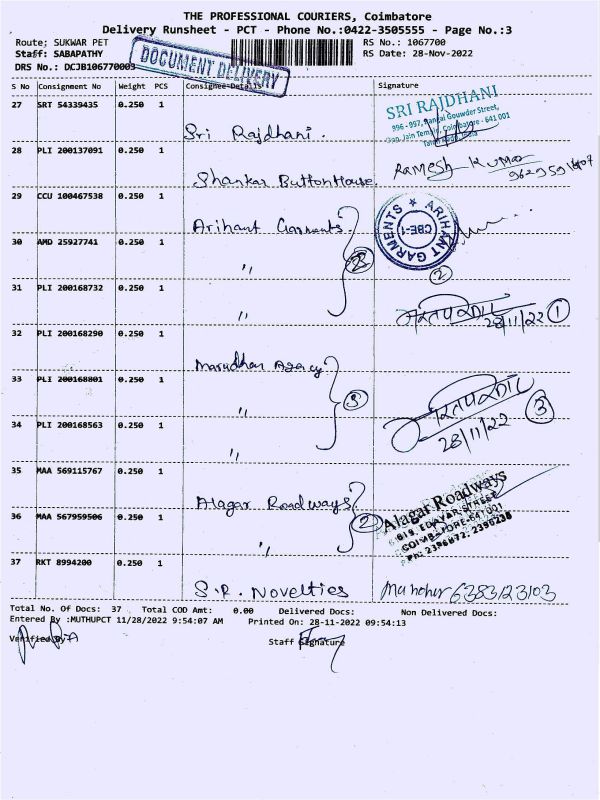 THE PROFESSIONAL COURIERS, Coimbatore
Delivery Runsheet - PCT - Phone No.:0422-3505555 - Page No.:3
Route; SUKWAR PET
RS No.: 1067700
Staff: SABAPATHY
RS Date: 28-Nov-2022
DRS No.: DCJB106770003
DOCUMENT DELIVERY
S No Consignment No Weight PCS Consignee Details Signature
27 SRT 54339435 0.250 1
Sri Rajdhani.
SRI RAJDHANI
996 - 997, Rangai Gouwder Street,
Jain Temple, Coimbatore - 641 001
28 PLI 200137091 0.250 1
Shankar Button House.
RAMESH KUMAR
29 CCU 100467538 0.250 1
Arihant Garments.
ARIHANT GARMENTS ★
CBE-1
30 AMD 25927741 0.250 1
"
2
31 PLI 200168732 0.250 1
"
28/11/22 1
32 PLI 200168290 0.250 1
Marudhar Agency
33 PLI 200168801 0.250 1
"
3
28/11/22 3
34 PLI 200168563 0.250 1
"
35 MAA 569115767 0.250 1
Alagar Roadways
2
Alagar Roadways
619, EDAYAR STREET
COIMBATORE-641 001
36 MAA 567959506 0.250 1
"
37 RKT 8994200 0.250 1
S.R. Novelties
Manohar 6383123103
Total No. Of Docs: 37 Total COD Amt: 0.00 Delivered Docs: Non Delivered Docs:
Entered By :MUTHUPCT 11/28/2022 9:54:07 AM Printed On: 28-11-2022 09:54:13
Verified By
Staff Signature